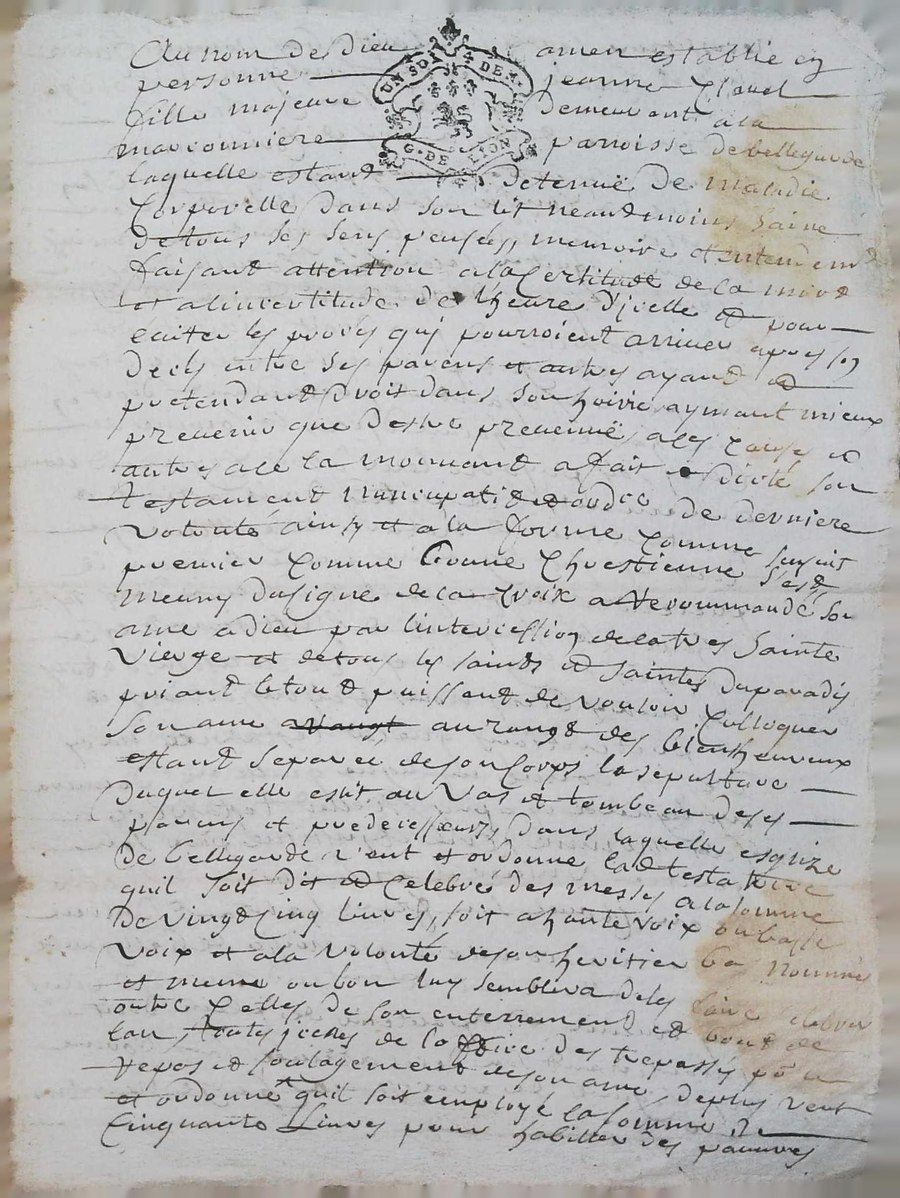 Au nom de Dieu amen establie en
personne jeanne Clauel
fille majeure demeurant a la
marconniere parroisse de bellegarde
laquelle estant detenuë de maladie
Corporelle dans son lit neantmoins saine
de tous ses sens pensées, memoire et entendemt
faisant attention a la Certitude de la mort
et a lincertitude de l'heure d'jcelle et pour
euiter les procés qui pourroient arriuer apres son
decés entre ses parens et autres ayant et
pretendant droit dans son hoirie, aymant mieux
preuenir que destre preuenuë, a les causes et
autres a ce la mouuant a fait et dicté son
testament nuncupatif et ordre de derniere
volonté ainsy et a la forme comme sensuit
premier comme bonne Chrestienne s'est
meuny du signe de la Croix a recommandé son
ame a dieu par lintercession de la tres Sainte
vierge et de tous les saints et saintes du paradis
priant le tout puissant de vouloir Colloquer
son ame au rangt des bienheureux
estant separée de son Corps la sepulture
duquel elle eslit au vas et tombeau de ses
parens et predecesseurs dans laquelle esglize
de bellegarde veut et ordonne ladt testatrice
quil soit dit et celebré des messes a la somme
de vingt cinq liures, soit a haute voix ou basse
voix et a la volonté de son heritier bas nommé
et meme ou bon luy semblera de les faire celebrer
outre celles de son enterrement et bout de
lan, toutes jcelles de loffice des trepassés pour
repos et soulagement de son ame, deplus veut
et ordonne quil soit employé la somme de
Cinquante Liures pour habiller des pauures
UN SOL 4 DEN.
G. DE LYON